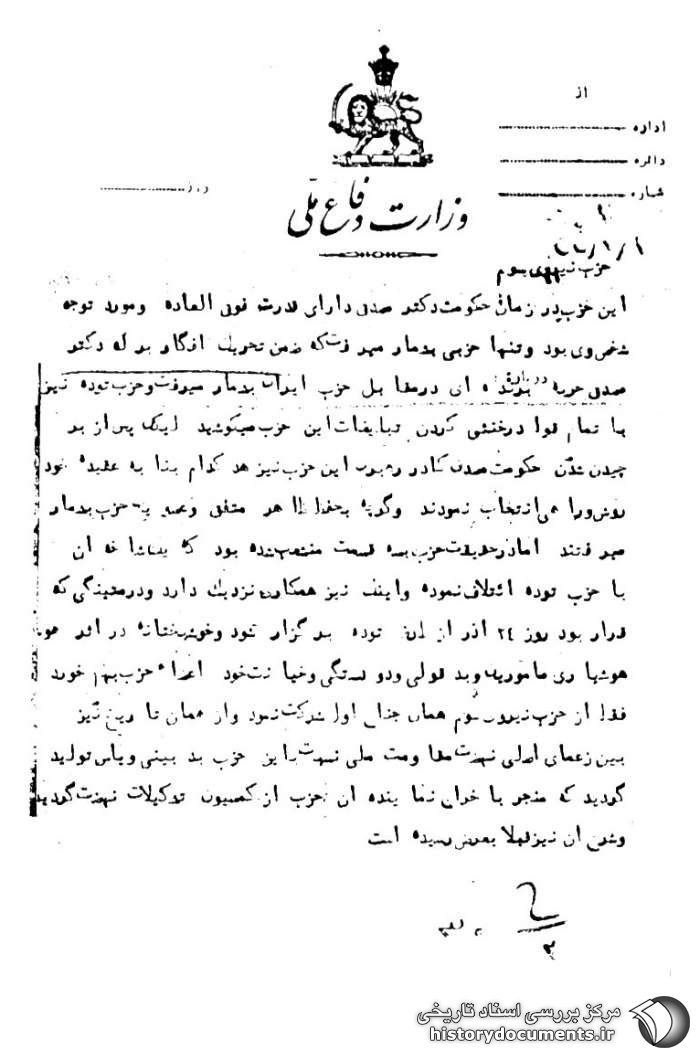 از
اداره
دائره
شماره
روز
وزارت دفاع ملی
حزب نیروی سوم
این حزب در زمان حکومت دکتر مصدق دارای قدرت فوق العاده و مورد توجه
شخص وی بود و تنها حزبی بشمار میرفت که ضمن تحریک افکار بر له دکتر
مصدق حربه برنده ای در مقابل حزب ایران بشمار میرفت و حزب توده نیز
با تمام قوا در خنثی کردن تبلیغات این حزب میکوشید اینک پس از بر
چیدن شدن حکومت مصدق کادر رهبری این حزب نیز هر کدام بنا به عقیده خود
روش ورا هی انتخاب نمودند وگرچه بحفظ ظاهر متفق وعضو یک حزب بشمار
میرفتند اما در حقیقت حزب بسه قسمت منشعب شده بود که یکشاخه ان
با حزب توده ائتلاف نموده واینک نیز همکاری نزدیک دارد ودرمتینگی که
قرار بود روز ٢٤ اذر از طرف توده برگزار شود وخوشبختانه در اثر
هوشیاری مامورین وبد قولی ودو دستگی وخیانت خود اعضاء حزب بهم خورد
فقط از حزب نیروی سوم همان جناح اول شرکت نمود واز همان تاریخ نیز
بین زعمای اصلی نهضت مقاومت ملی نسبت باین حزب بد بینی ویاس تولید
گردید که منجر با خراج نماینده ان حزب از کمسیون تشکیلات نهضت گردید
وشرح ان نیز قبلا بعرض رسیده است
مرکز بررسی اسناد تاریخی
historydocuments.ir